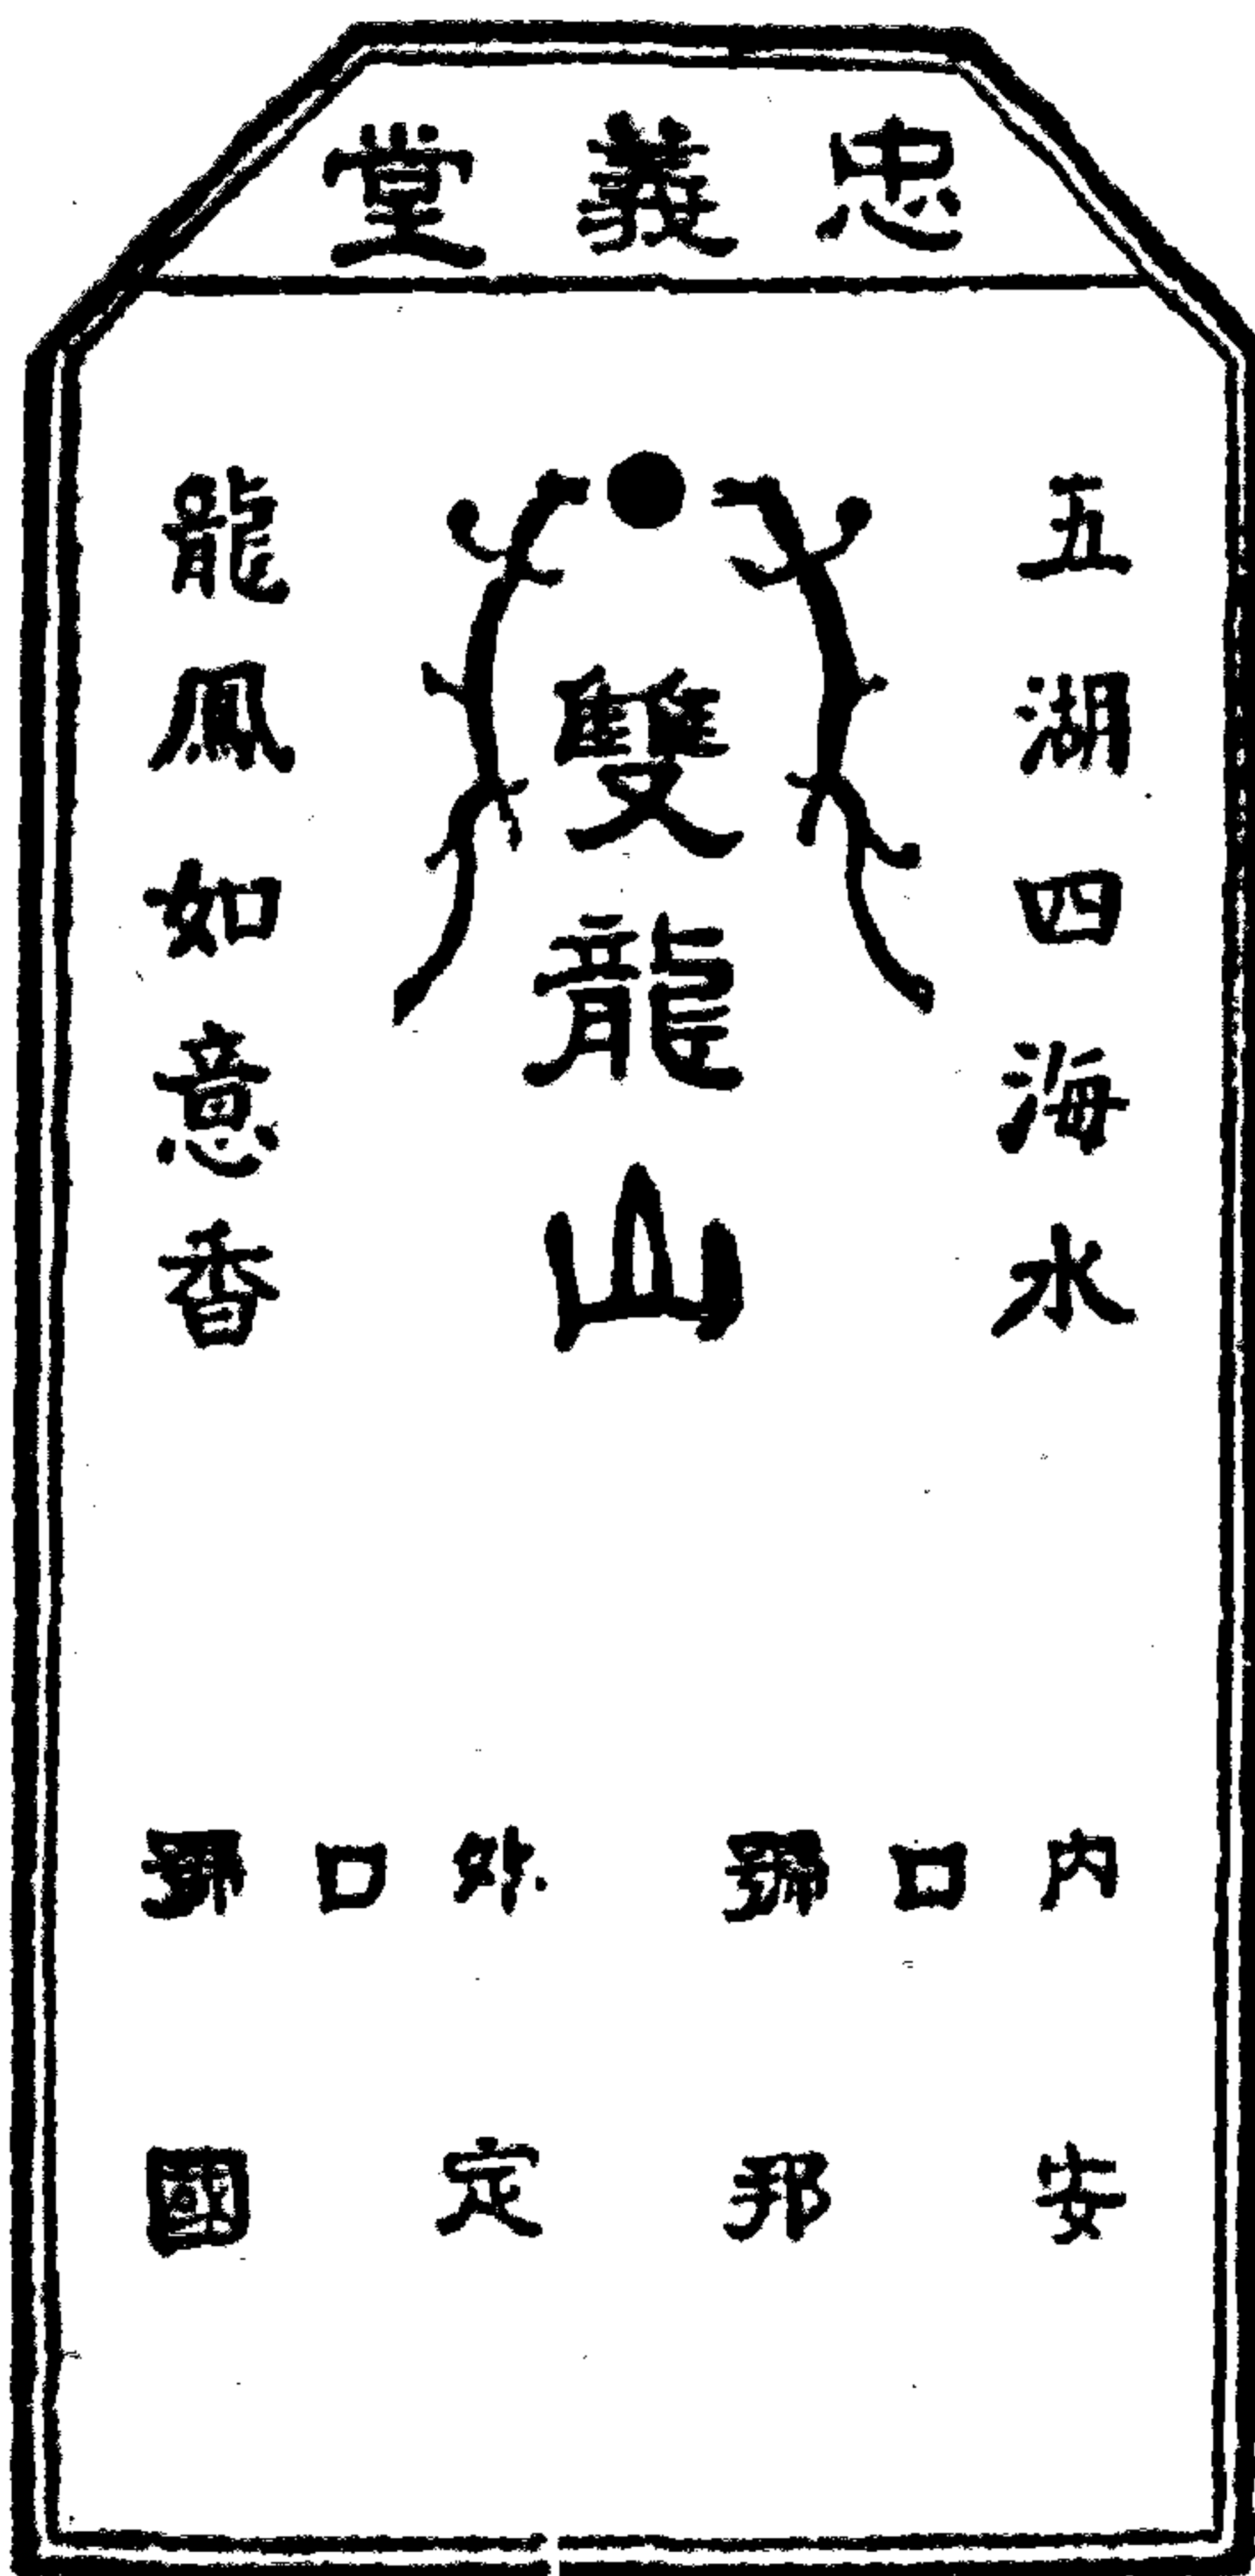 忠義堂
五湖四海水
雙龍山
龍鳳如意香
內口號
外口號
安邦定國